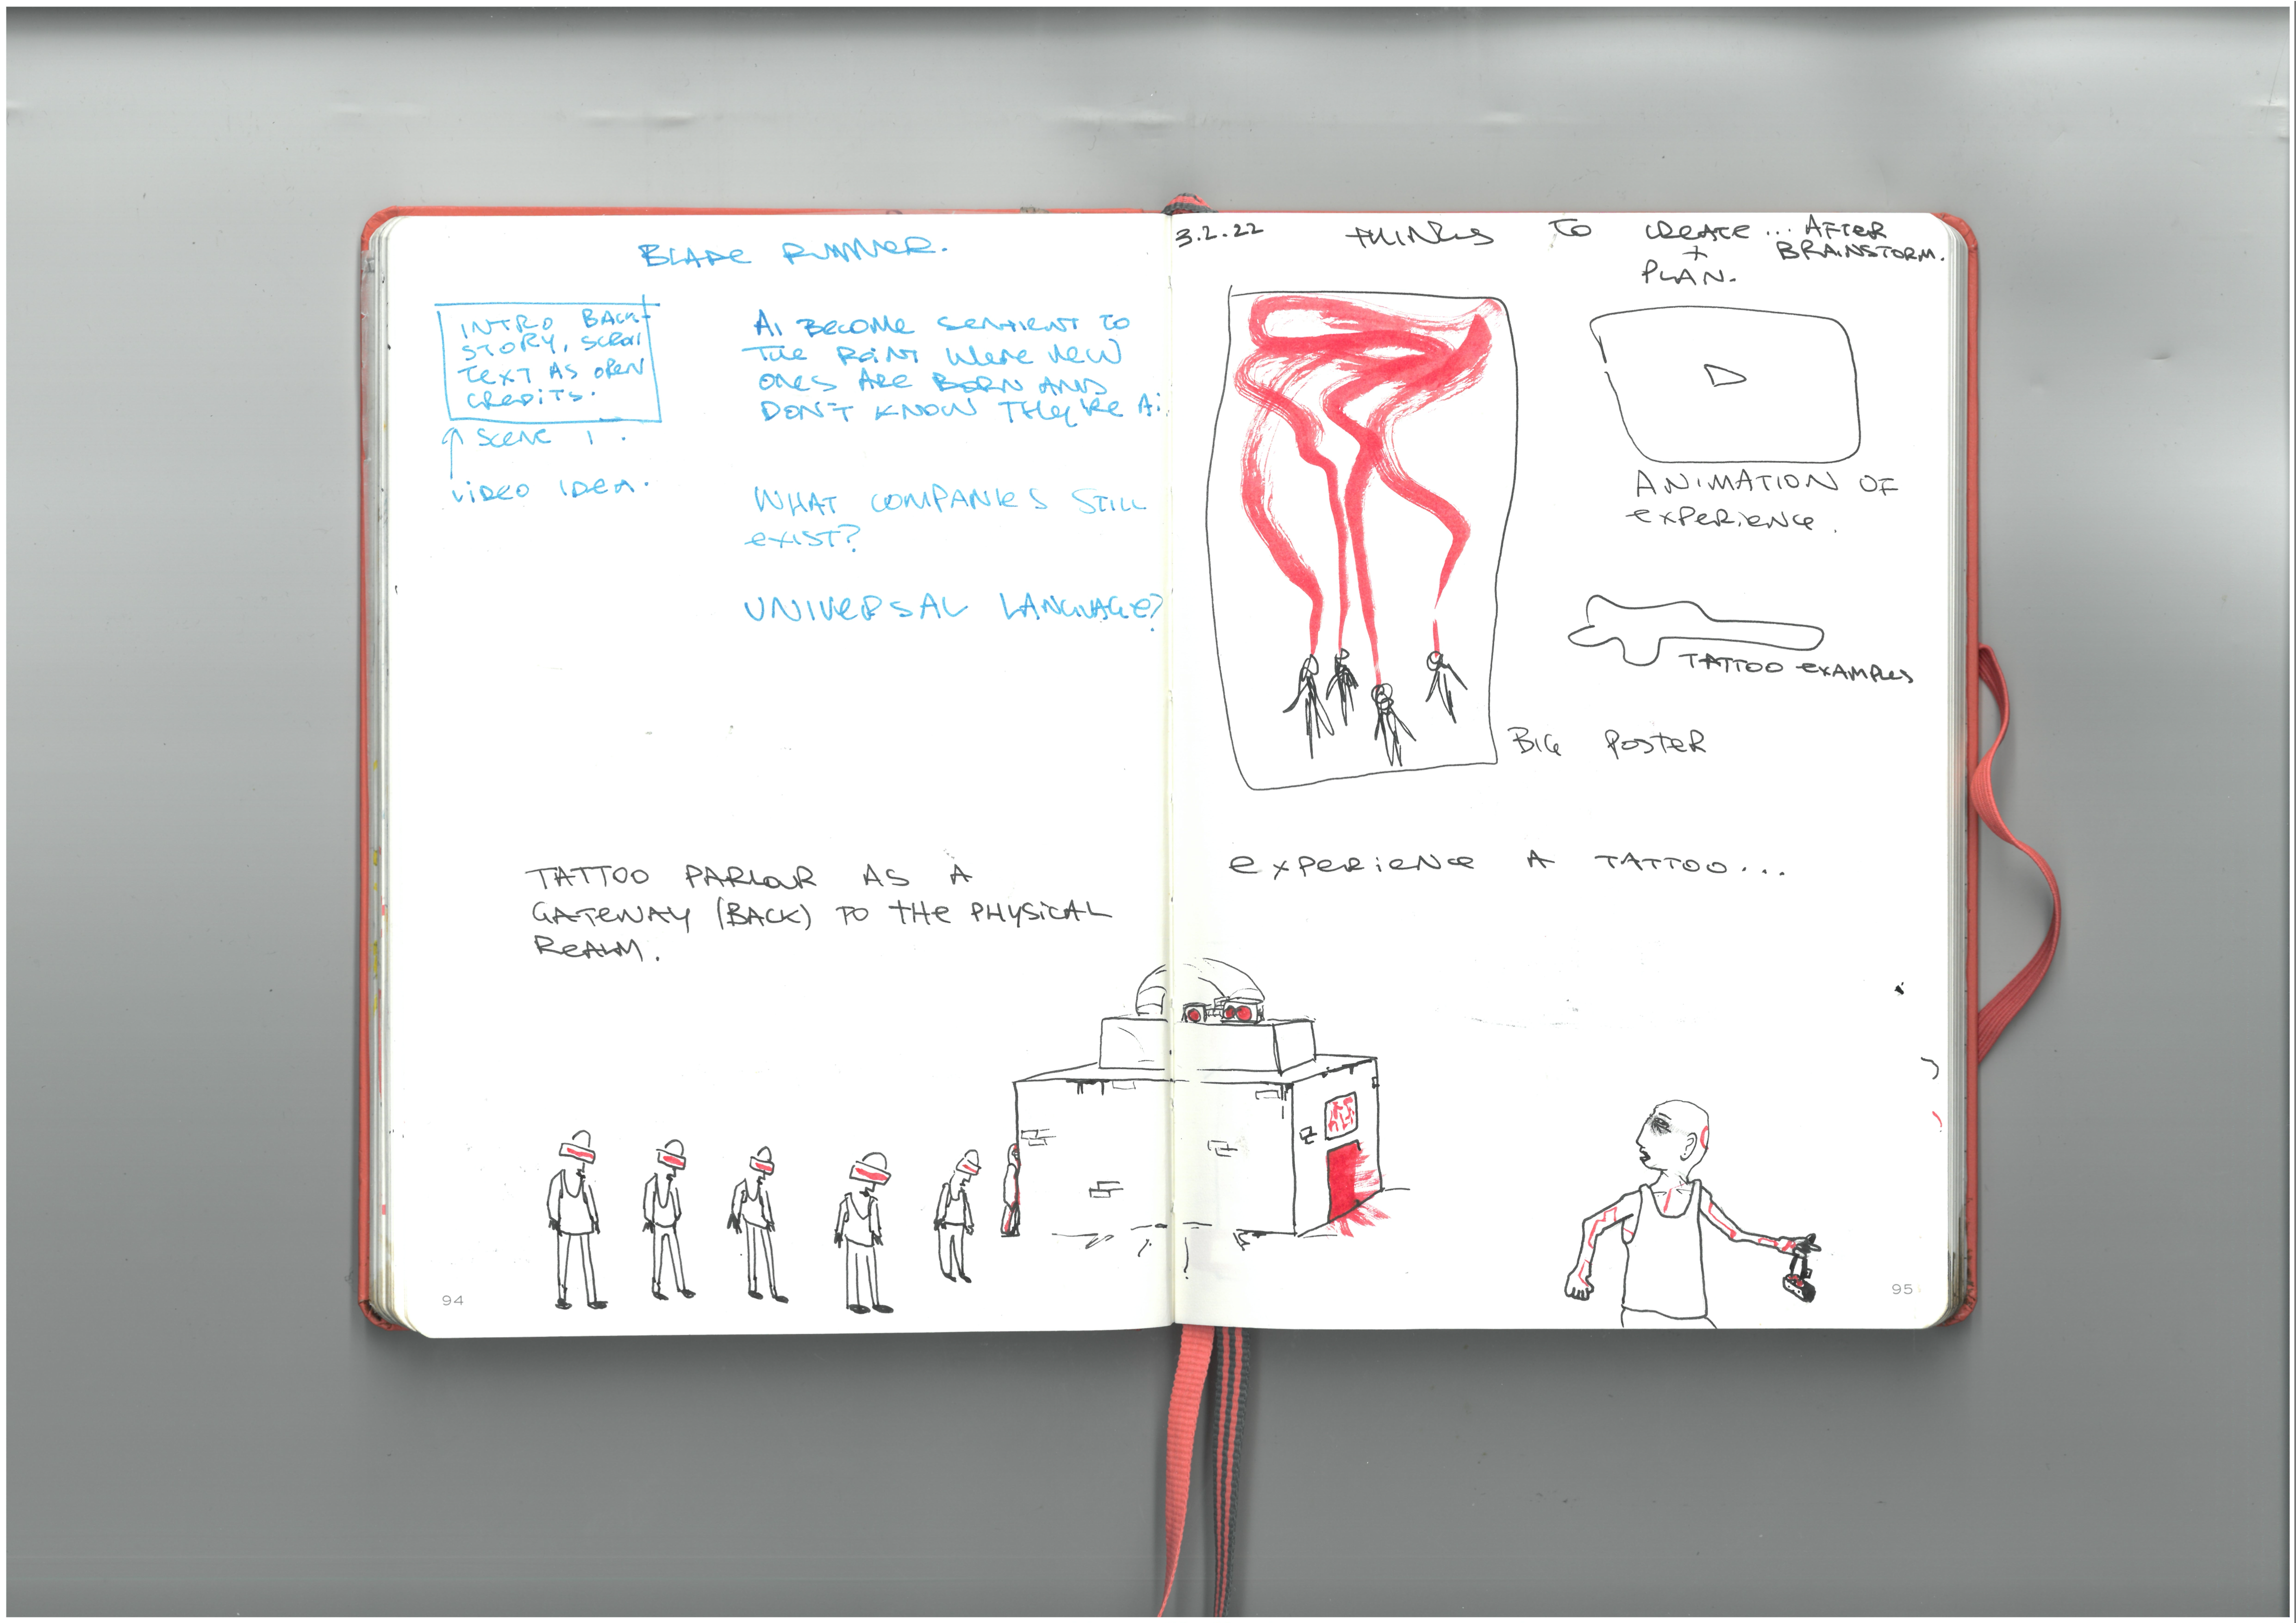 BLADE RUNNER.
INTRO BACK-
STORY, SCROLL
TEXT AS OPEN
CREDITS.
SCENE 1.
VIDEO IDEA.
AI BECOME SENTIENT TO
THE POINT WERE NEW
ONES ARE BORN AND
DON'T KNOW THEY'RE Ai.
WHAT COMPANIES STILL
EXIST?
UNIVERSAL LANGUAGE?
TATTOO PARLOUR AS A
GATEWAY (BACK) TO THE PHYSICAL
REALM.
94
3.2.22 THINGS TO CREATE ... AFTER
+ BRAINSTORM.
PLAN.
ANIMATION OF
EXPERIENCE.
TATTOO EXAMPLES
BIG POSTER
EXPERIENCE A TATTOO...
95